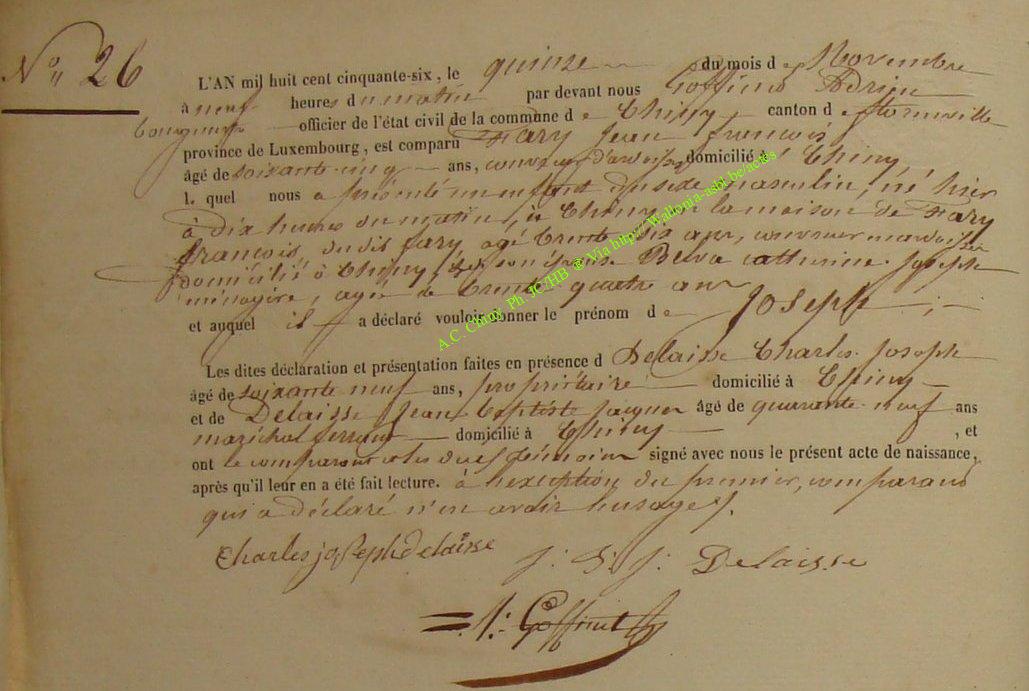 N° 26
L'AN mil huit cent cinquante-six, le quinze du mois de Novembre
à neuf heures du matin par devant nous Goffinet Adrien
Bourgmestre officier de l'état civil de la commune de Chiny canton de florenville
province de Luxembourg, est comparu Fary Jean françois
âgé de soixante cinq ans, couvreur d'ardoises domicilié à Chiny
lequel nous a présenté un enfant du sexe masculin, né hier
à dix heures du matin, à Chiny en la maison de Fary
françois, du dit fary, agé trente six ans, couvreur
domicilié à Chiny, et de son épouse catherine Joseph
ménagère, agée de trente quatre ans
et auquel il a déclaré vouloir donner le prénom de Joseph
Les dites déclaration et présentation faites en présence d Delaisse Charles Joseph
âgé de soixante neuf ans, propriétaire domicilié à Chiny
et de Delaisse Jean Baptiste Jacques âgé de quarante neuf ans
maréchal ferrant domicilié à Chiny , et
ont le comparant et les deux témoins signé avec nous le présent acte de naissance,
après qu'il leur en a été fait lecture. à l'exception du premier, comparant
qui a déclaré n'en avoir l'usage.
Charles joseph delaisse
J. B. J. Delaisse
A. Goffinet
A.C. Chiny Ph. JC/HB ® Via http://Wallonia-asbl.be/actes